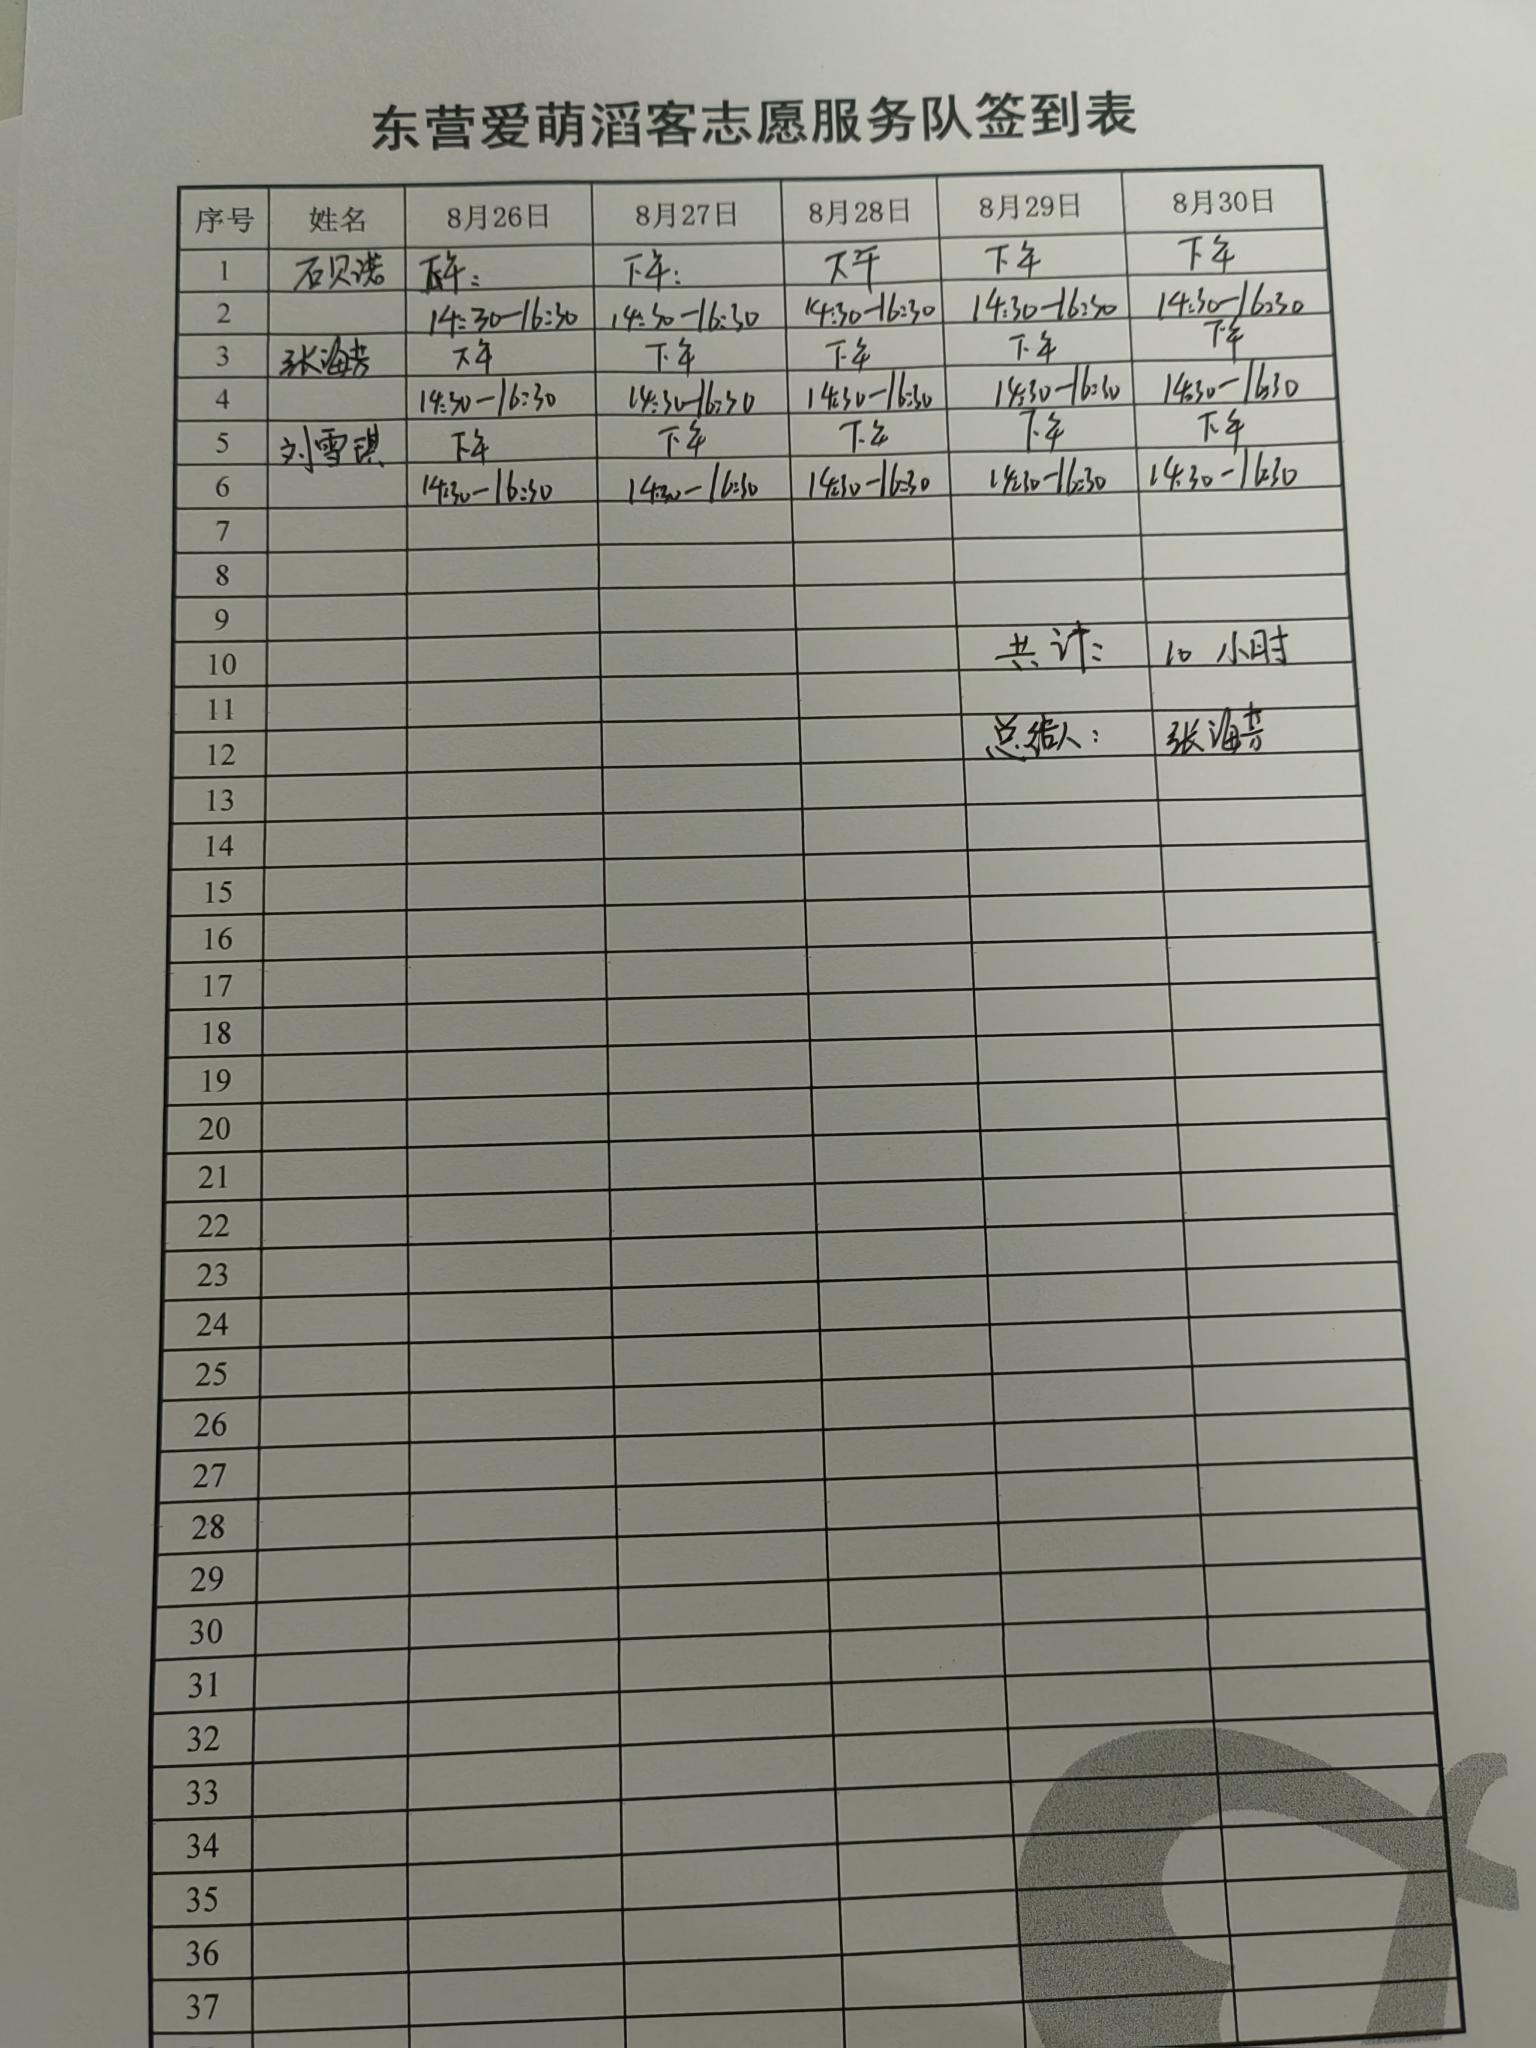 东营爱萌滔客志愿服务队签到表
序号 姓名 8月26日 8月27日 8月28日 8月29日 8月30日
1 石贝诺 下午: 下午: 下午 下午 下午
2 14:30-16:30 14:30-16:30 14:30-16:30 14:30-16:30 14:30-16:30
3 张海 下午 下午 下午 下午 下午
4 14:30-16:30 14:30-16:30 14:30-16:30 14:30-16:30 14:30-16:30
5 刘雪琪 下午 下午 下午 下午 下午
6 14:30-16:30 14:30-16:30 14:30-16:30 14:30-16:30 14:30-16:30
7
8
9
10 共计: 10 小时
11
12 总结人: 张海
13
14
15
16
17
18
19
20
21
22
23
24
25
26
27
28
29
30
31
32
33
34
35
36
37